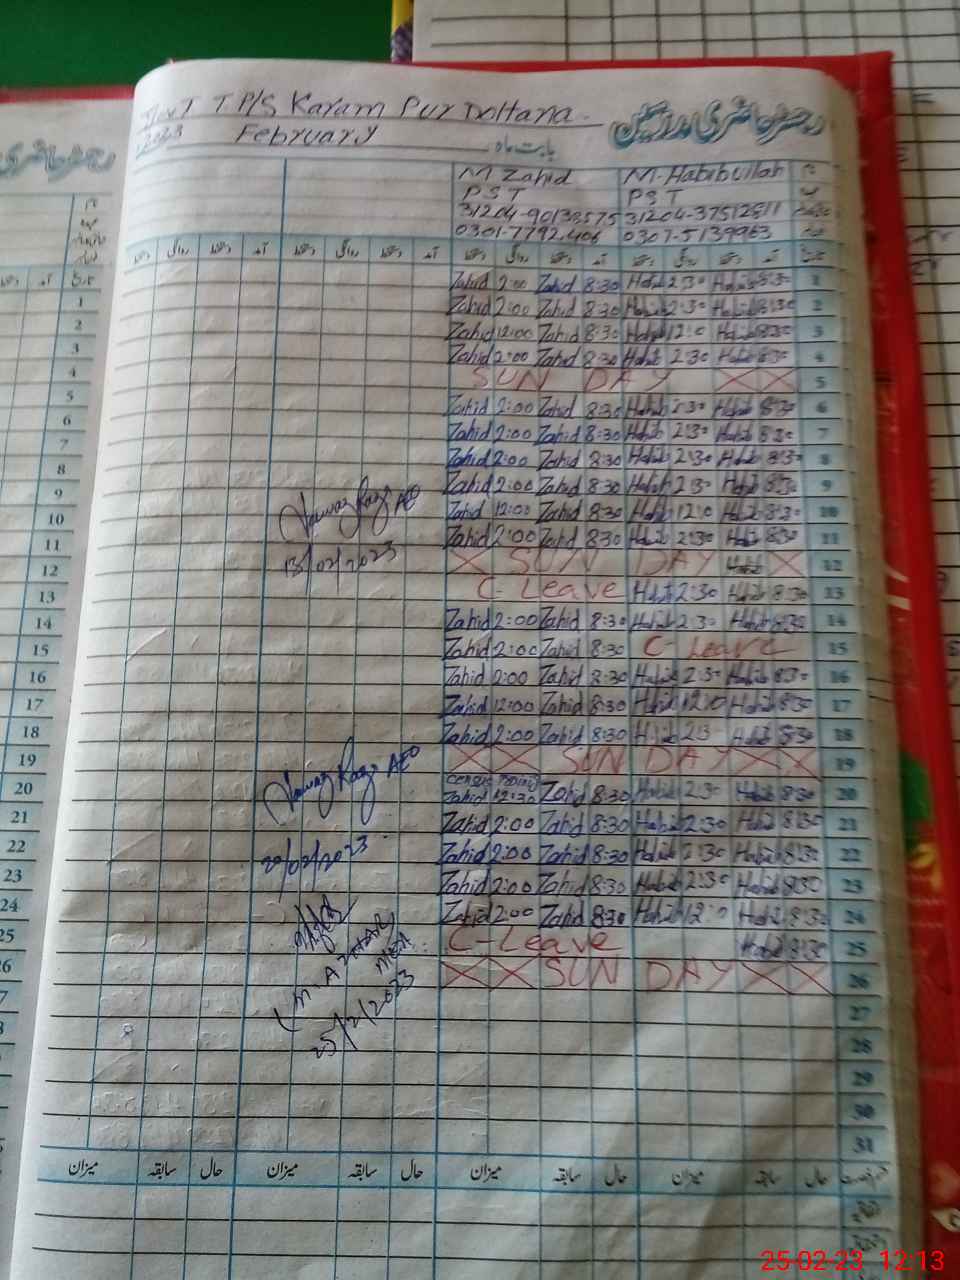 Govt T P/S Karam Pur Doltana.
رجسٹر حاضری مدرسین
2023 February بابت ماہ
M Zahid M. Habibullah
PST PST
31204-90138575 31204-37512511
0301-7792406 0307-5139963
Zahid 2:00 Zahid 8:30 Habib 2:30 Habib 8:30 1
Zahid 2:00 Zahid 8:30 Habib 2:30 Habib 8:30 2
Zahid 12:00 Zahid 8:30 Habib 12:0 Habib 8:30 3
Zahid 2:00 Zahid 8:30 Habib 2:30 Habib 8:30 4
SUN DAY 5
Zahid 2:00 Zahid 8:30 Habib 2:30 Habib 8:30 6
Zahid 2:00 Zahid 8:30 Habib 2:30 Habib 8:30 7
Zahid 2:00 Zahid 8:30 Habib 2:30 Habib 8:30 8
Zahid 2:00 Zahid 8:30 Habib 2:30 Habib 8:30 9
Zahid 12:00 Zahid 8:30 Habib 12:0 Habib 8:30 10
Zahid 2:00 Zahid 8:30 Habib 2:30 Habib 8:30 11
SUN DAY Habib 12
C-Leave Habib 2:30 Habib 8:30 13
Zahid 2:00 Zahid 8:30 Habib 2:30 Habib 8:30 14
Zahid 2:00 Zahid 8:30 C-Leave 15
Zahid 2:00 Zahid 8:30 Habib 2:30 Habib 8:30 16
Zahid 12:00 Zahid 8:30 Habib 12:0 Habib 8:30 17
Zahid 2:00 Zahid 8:30 Habib 2:3 Habib 8:30 18
SUN DAY 19
Census
Zahid 12:30 Zahid 8:30 Habib 2:30 Habib 8:30 20
Zahid 2:00 Zahid 8:30 Habib 2:30 Habib 8:30 21
Zahid 2:00 Zahid 8:30 Habib 2:30 Habib 8:30 22
Zahid 2:00 Zahid 8:30 Habib 2:30 Habib 8:30 23
Zahid 2:00 Zahid 8:30 Habib 12:0 Habib 8:30 24
C-Leave Habib 8:30 25
SUN DAY 26
27
28
29
30
31
AEO
13/02/2023
AEO
20/02/2023
M. AZHAR
MEA
25/2/2023
میزان سابقہ حال میزان سابقہ حال میزان سابقہ حال میزان سابقہ حال
1
2
3
4
5
6
7
8
9
10
11
12
13
14
15
16
17
18
19
20
21
22
23
24
25
26
25-02-23 12:13